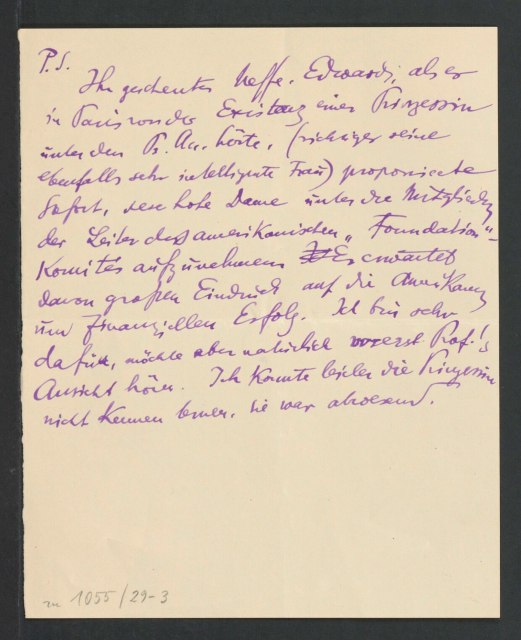 P.S.
Ihr gescheuter Neffe, Edwards, als er
in Paris von der Existenz einer Prinzessin
unter den Ps. An. hörte, (richtiger seine
ebenfalls sehr intelligente Frau) proponierte
sofort, diese hohe Dame unter die Mitglieder
der Leiter des amerikanischen „Foundation“-
Komités aufzunehmen. Er erwartet
davon großen Eindruck auf die Amerikaner
und finanziellen Erfolg. Ich bin sehr
dafür, möchte aber natürlich vorerst Prof.'s
Ansicht hören. Ich konnte leider die Prinzessin
nicht kennen lernen, sie war abwesend.
zu 1055/29-3